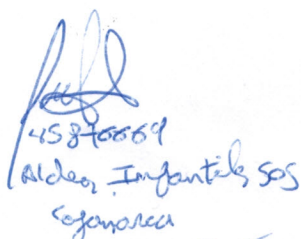 45876669
Aldea Infantiles SOS
Cajamarca